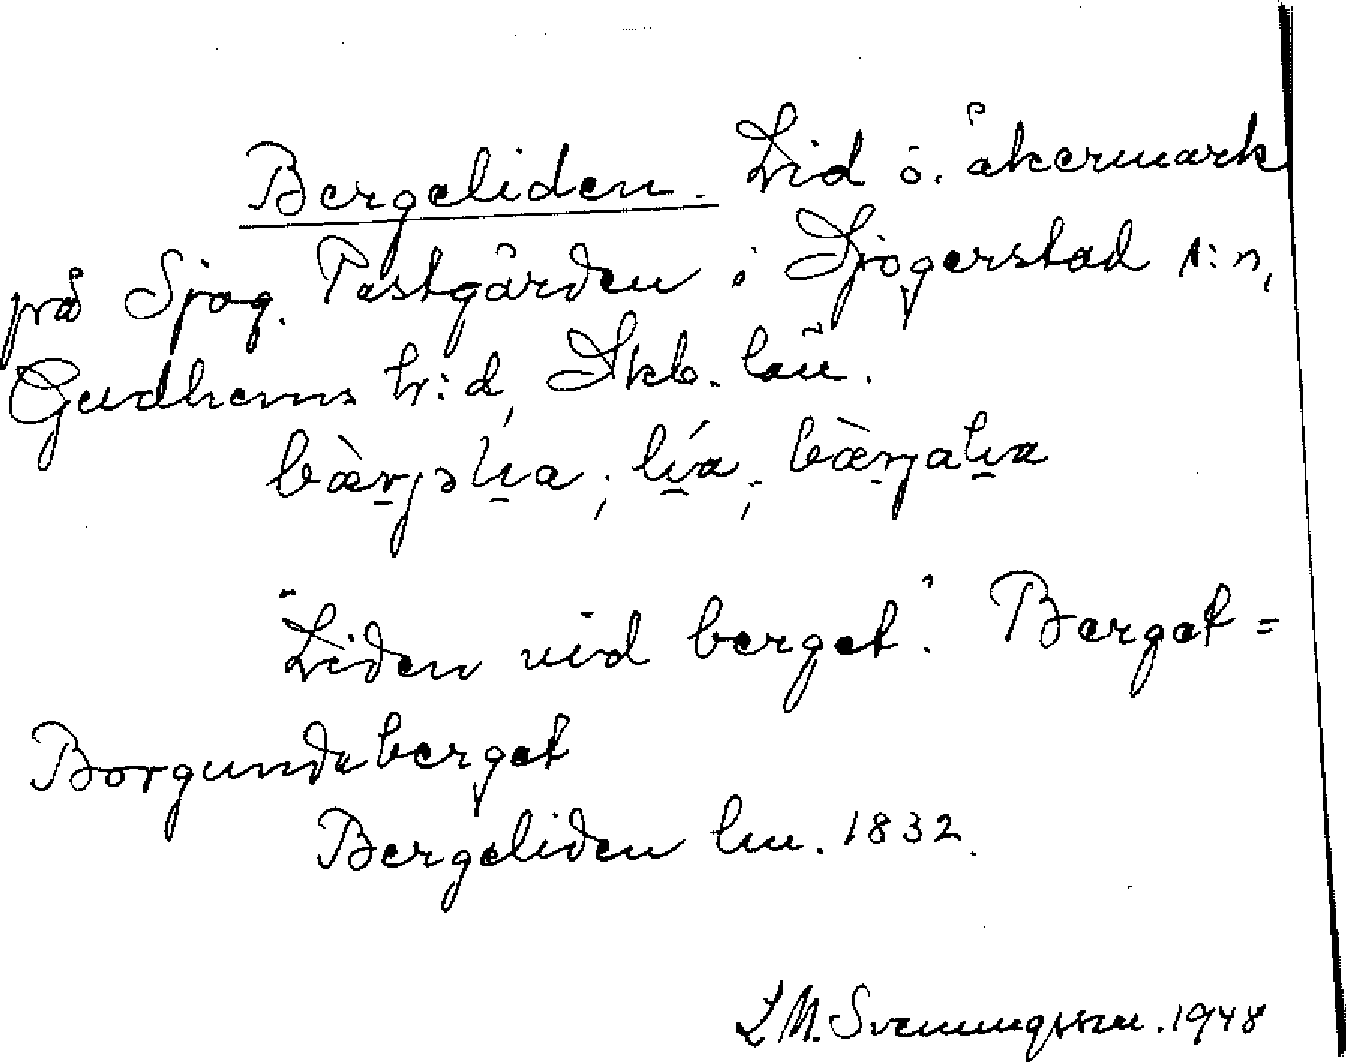 Bergeliden. Lid o. åkermark
på Sjog. Västgården i Sjogerstad s:n,
Gudhems h:d, Skb. län.
bæ̀rjəli̱a; lí̱a; bæ̀rjali̱a
"Liden vid berget". Berget =
Borgundaberget
Bergeliden lm. 1832.
L M. Svenungsson. 1948